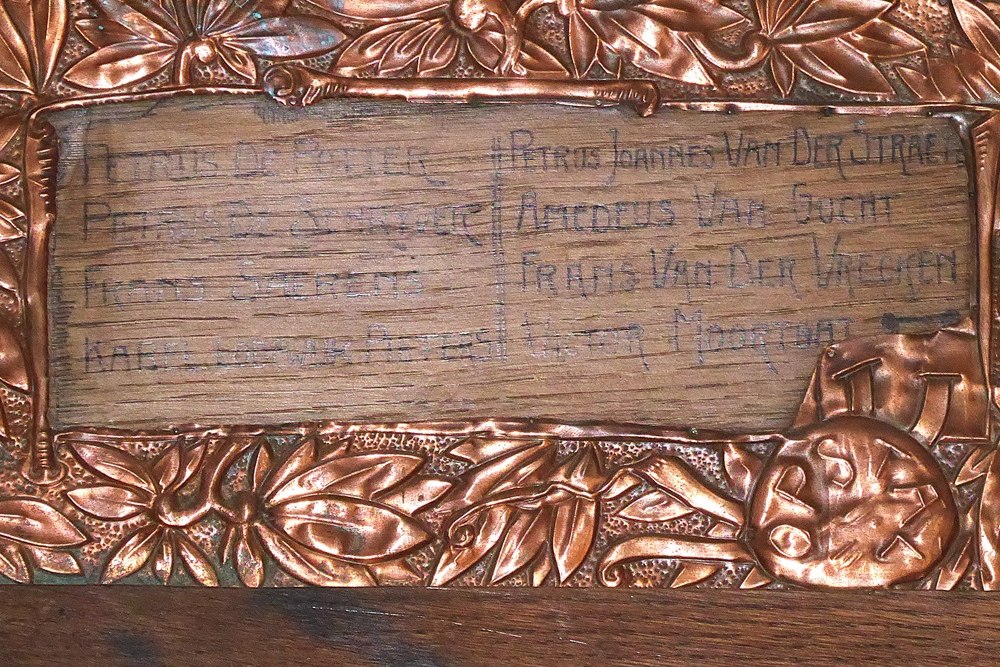 PETRUS DE POTTER
PETRUS DE SCHRYVER
FRANS SAERENS
KAREL LODEWYK PEETERS
PETRUS JOANNES VAN DER STRAETEN
AMEDEUS VAN GUCHT
FRANS VAN DER VRECKEN
VICTOR MOORTGAT